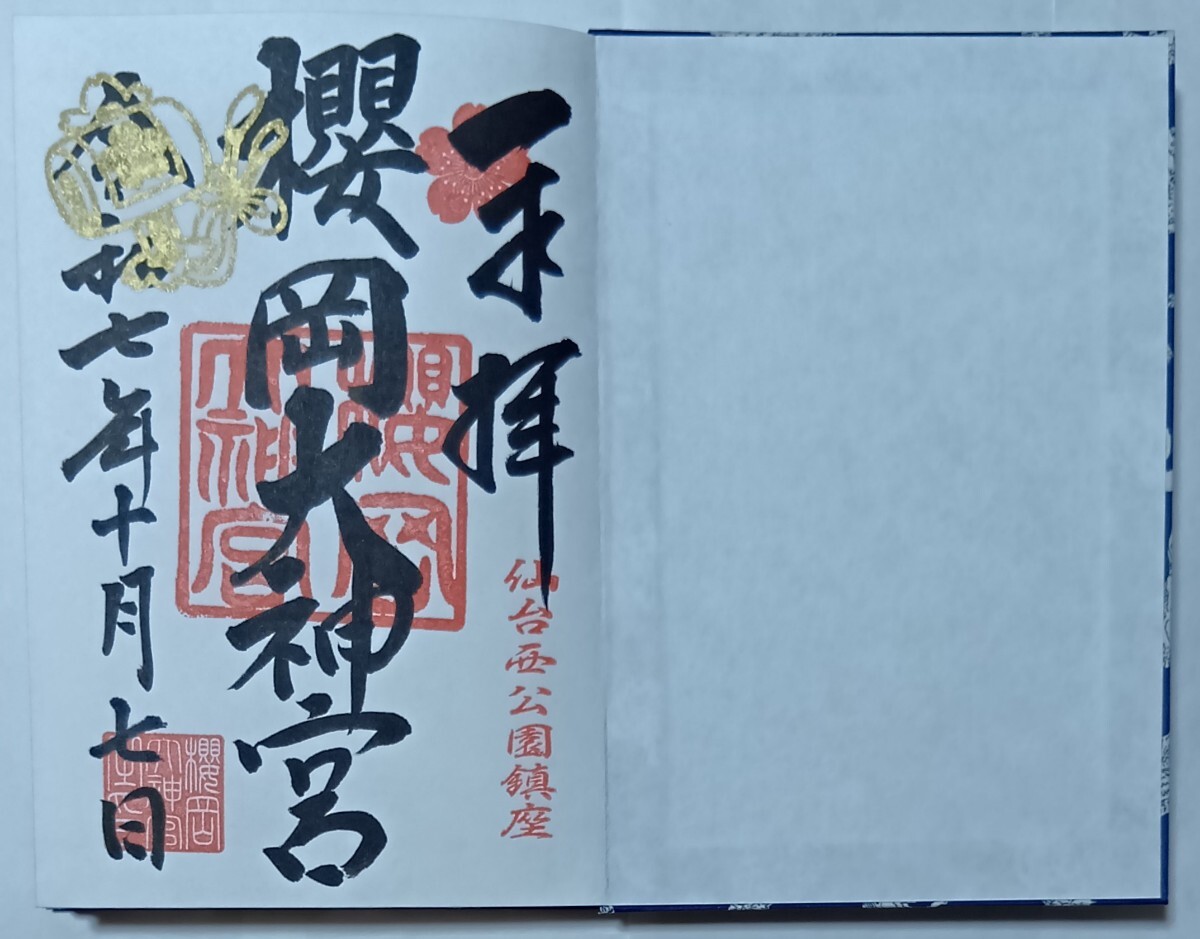 奉拝
仙台西公園鎮座
櫻岡大神宮
櫻岡
大神宮
和七年十月七日
櫻岡
大神宮